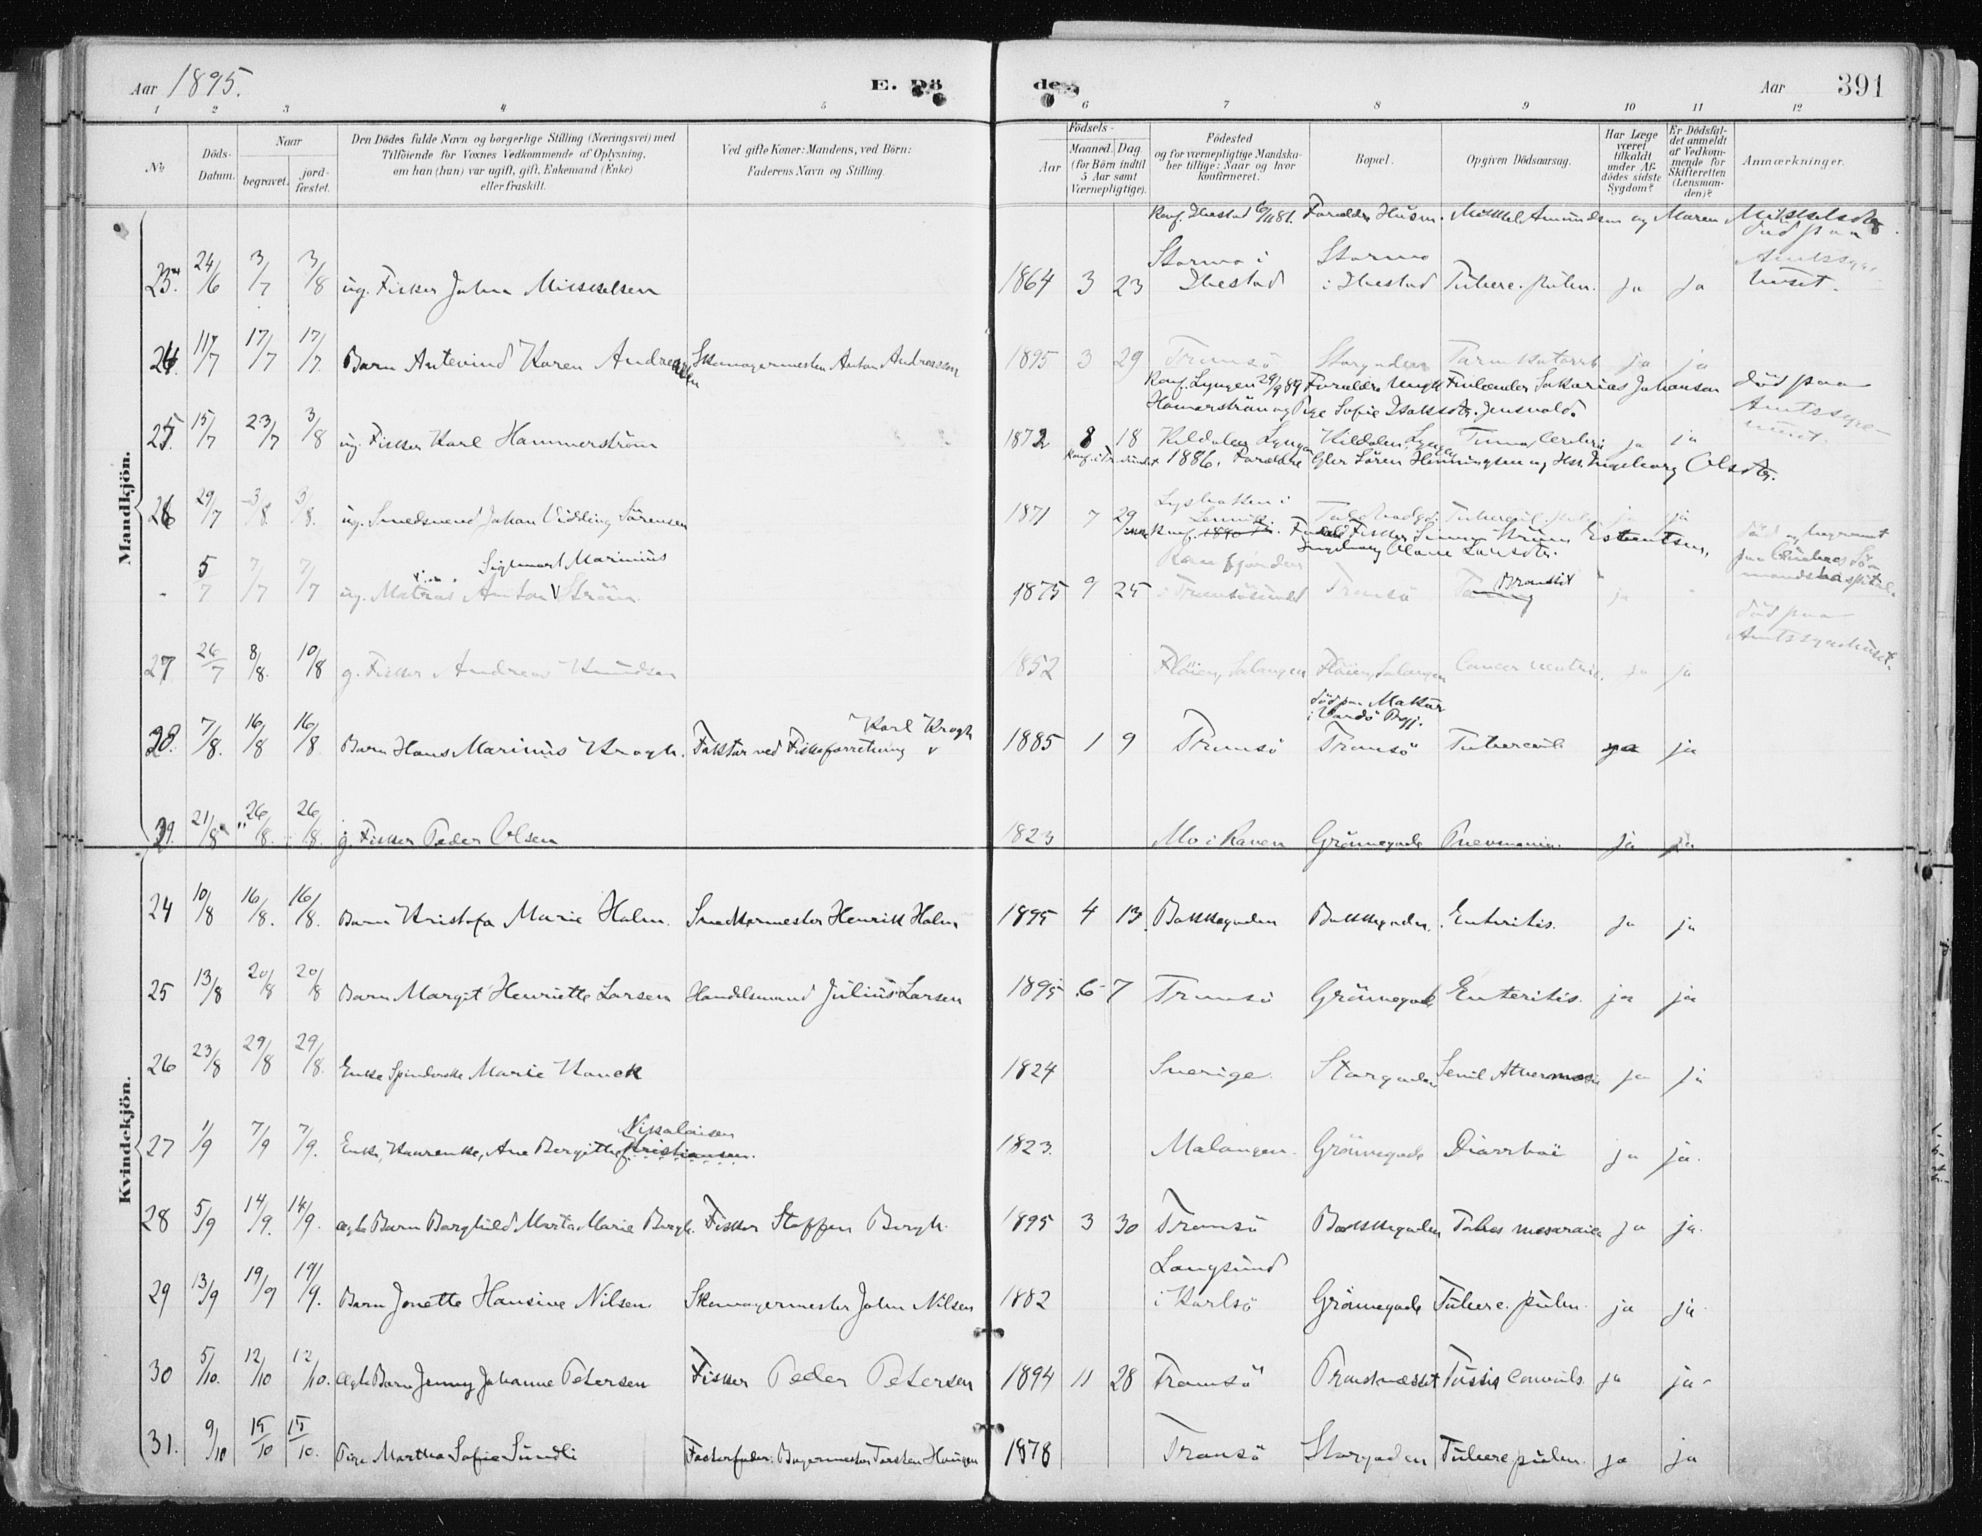 Aar 1895. E. Dö de. Aar 391
1 2 3 4 5 6 7 8 9 10 11 12
No. Döds-Datum. Naar begravet. jord-fæstet. Den Dödes fulde Navn og borgerlige Stilling (Næringsvei) med Tilföiende for Voxnes Vedkommende af Oplysning, om han (hun) var ugift, gift, Enkemand (Enke) eller fraskilt. Ved gifte Koner: Mandens, ved Börn: Faderens Navn og Stilling. Aar Födsels- Maaned. Dag. (for Børn indtil 5 Aar samt Værnepligtige). Födested og for værnepligtige Mandskaber tillige: Naar og hvor konfirmeret. Bopæl. Opgiven Dödsaarsag. Har Læge været tilkaldt under Afdödes sidste Sygdom? Er Dödsfaldet anmeldt af Vedkommende for Skifteretten (Lensmanden)? Anmærkninger.
Mandkjön.
Konf. Ibestad 6/11 81. Forældre Husm. Mikkel Amundsen og Maren Mikkelsdtr.
23. 24/6 3/7 3/8 ug. Fisker Johan Mikkelsen 1864 3 23 Stormo i Ibestad Stormo i Ibestad Tuberc. pulm. ja ja död paa Amtssygehuset.
24. 11/7 17/7 17/7 Barn Antevind Karen Andreassen Skomagermester Anton Andreassen 1895 3 29 Tromsö Storgaden Tarmkatarrh ja ja
Konf. Lyngen 29/9 89 Forældre Ungk. Finlænder Sakarias Johansen Hamarström og Pige Sofie Isaksdtr.
25. 15/7 23/7 3/8 ug. Fisker Karl Hammerström 1872 8 18 Kildalen Lyngen Kildalen, Lyngen Tumor Cerebri ja ja död paa Amtssygehuset.
1886. Forældre Gbr Sören Henningsen og Hst. Ingeborg Olsdtr.
26 29/7 3/8. 3/8. ug. Smedsvend Johan Vidding Sörensen 1871 7 29 Tuberkul. pulm. ja ja
- 5/7 7/7 7/7 ug. Matros Anton Sigmart Marinius Ström 1875 9 25 i Tromsösund Tromsö Bronkit ja död og begravet paa
27 26/7 8/8. 10/8 g. Fisker Andreas Knudsen 1852 Flöien, Salangen Flöien, Salangen Cancer ventric. ja ja död paa Amtssygehuset.
28. 7/8. 16/8 16/8 Barn Hans Marinius Krogh. Faktor ved Fiskeforretning Karl Krogh 1885 1 9 Tromsö Tromsö död paa Makur i Vardö Prgj. Tubercul. ja ja
29. 21/8 26/8. 26/8. g. Fisker Peder Olsen 1823 Mo i Ranen Grönnegade Pneumonia. ja ja
Kvindekjön.
24 10/8 16/8. 16/8. Barn Kristofa Marie Holm. Snedkermester Henrik Holm 1895 4 13. Bakkegaden Bakkegaden. Enteritis. ja ja
25 13/8 20/8 20/8 Barn Margit Henriette Larsen Handelsmand Julius Larsen 1895 6 7 Tromsö Grönnegade Enteritis. ja ja
26 23/8 29/8 29/8. Enke Spinderske Marie Kanck 1824 Sverige. Storgaden Senil ja ja
27 1/9 7/9 7/9. Enke, Ane Bergitte Kristiansen. Nikolaisen 1823. Malangen. Grönnegade Diarrhöi ja ja.
28 5/9 14/9. 14/9. ægte Barn Borghild Marta Marie Bergh. Fisker Staffen Bergh. 1895 3 30 Tromsö Bakkegaden Tabes mesaraica ja ja.
29 13/9 19/9 19/9. Barn Jonette Hansine Nilsen. Skomagermester John Nilsen 1882 Langsund i Karlsö Grönnegade Tuberc. pulm. ja ja
30 5/10. 12/10 12/10. ægte Barn Jenny Johanne Petersen Fisker Peder Petersen 1894 11 28 Tromsö Tussis convuls. ja ja
31. 9/10 15/10 15/10. Pige Martha Sofie Sundli Fosterfader: Bagermester Torsten Haugen 1878 Tromsö Storgaden Tuberc pulm. ja ja